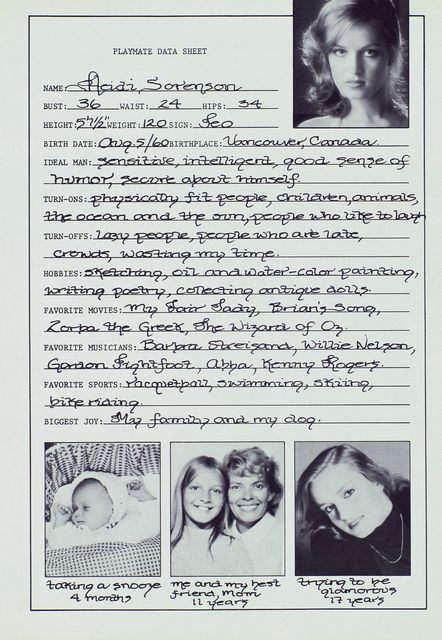 PLAYMATE DATA SHEET
NAME: Heidi Sorenson
BUST: 36 WAIST: 24 HIPS: 34
HEIGHT: 5'7½" WEIGHT: 120 SIGN: Leo
BIRTH DATE: Aug. 5/60 BIRTHPLACE: Vancouver, Canada.
IDEAL MAN: sensitive, intelligent, good sense of
humor, secure about himself.
TURN-ONS: physically fit people, children, animals,
the ocean and the sun, people who like to laugh
TURN-OFFS: lazy people, people who are late,
crowds, wasting my time.
HOBBIES: sketching, oil and water-color painting,
writing poetry, collecting antique dolls.
FAVORITE MOVIES: My Fair Lady, Brian's Song,
Zorba the Greek, The Wizard of Oz.
FAVORITE MUSICIANS: Barbra Streisand, Willie Nelson,
Gordon Lightfoot, Abba, Kenny Rogers.
FAVORITE SPORTS: racquetball, swimming, skiing,
bike riding.
BIGGEST JOY: My family and my dog.
taking a snooze
4 months
me and my best
friend, Mom
11 years
trying to be
glamorous
17 years